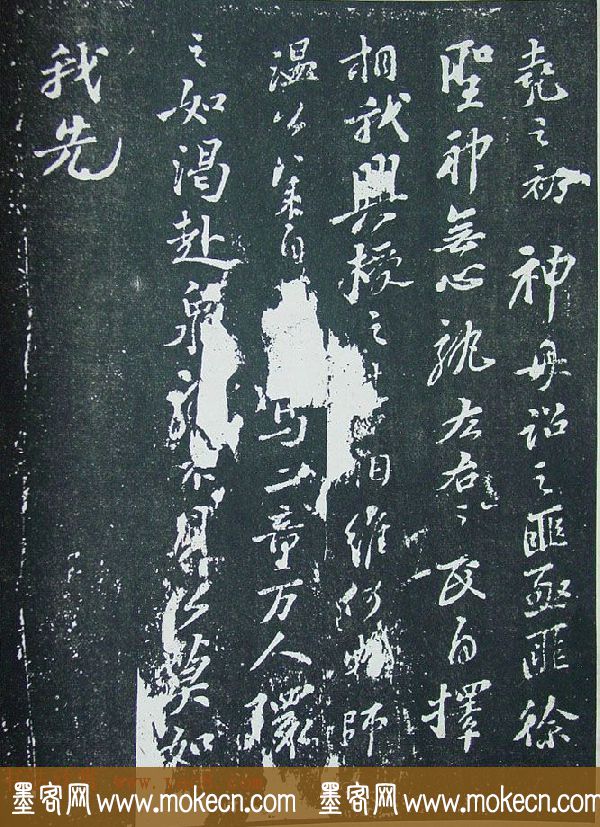 堯之初神母詔之匪亟匪徐
聖神無心孰左右之民自擇
相我興授之相維何太師
溫公公來自馬二童万人環
之如渴赴泉孰不見公莫如
我先
墨客网 www.mokecn.com 墨客网 www.mokecn.com